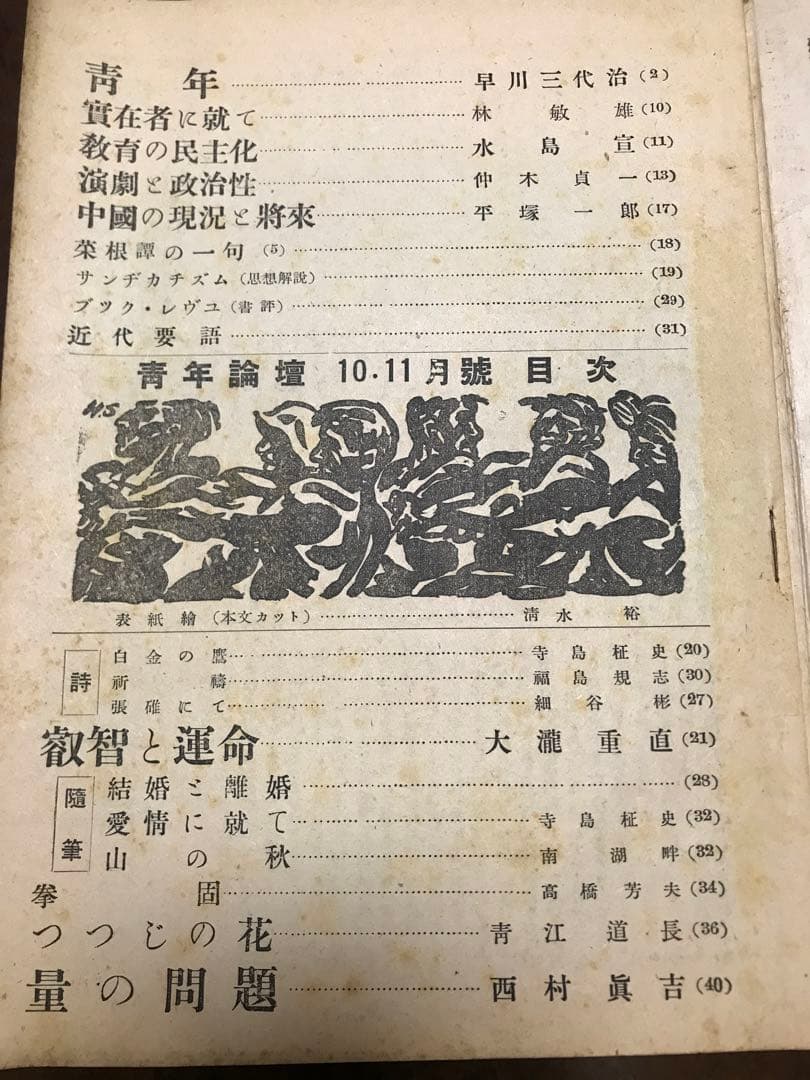 靑年……早川三代治(2)
實在者に就て……林敏雄(10)
教育の民主化……水島宣(11)
演劇と政治性……仲木貞一(13)
中國の現況と將來……平塚一郞(17)
菜根譚の一句(5)……(18)
サンヂカチズム(思想解說)……(19)
ブツク・レヴユ(書評)……(29)
近代要語……(31)
靑年論壇 10.11月號 目次
N.S
表紙繪(本文カット)……淸水裕
詩
白金の鷹……寺島柾史(20)
祈禱……福島規志(30)
張碓にて……細谷彬(27)
叡智と運命……大瀧重直(21)
隨筆
結婚と離婚……(28)
愛情に就て……寺島柾史(32)
山の秋……南湖畔(32)
拳固……高橋芳夫(34)
つつじの花……靑江道長(36)
量の問題……西村眞吉(40)